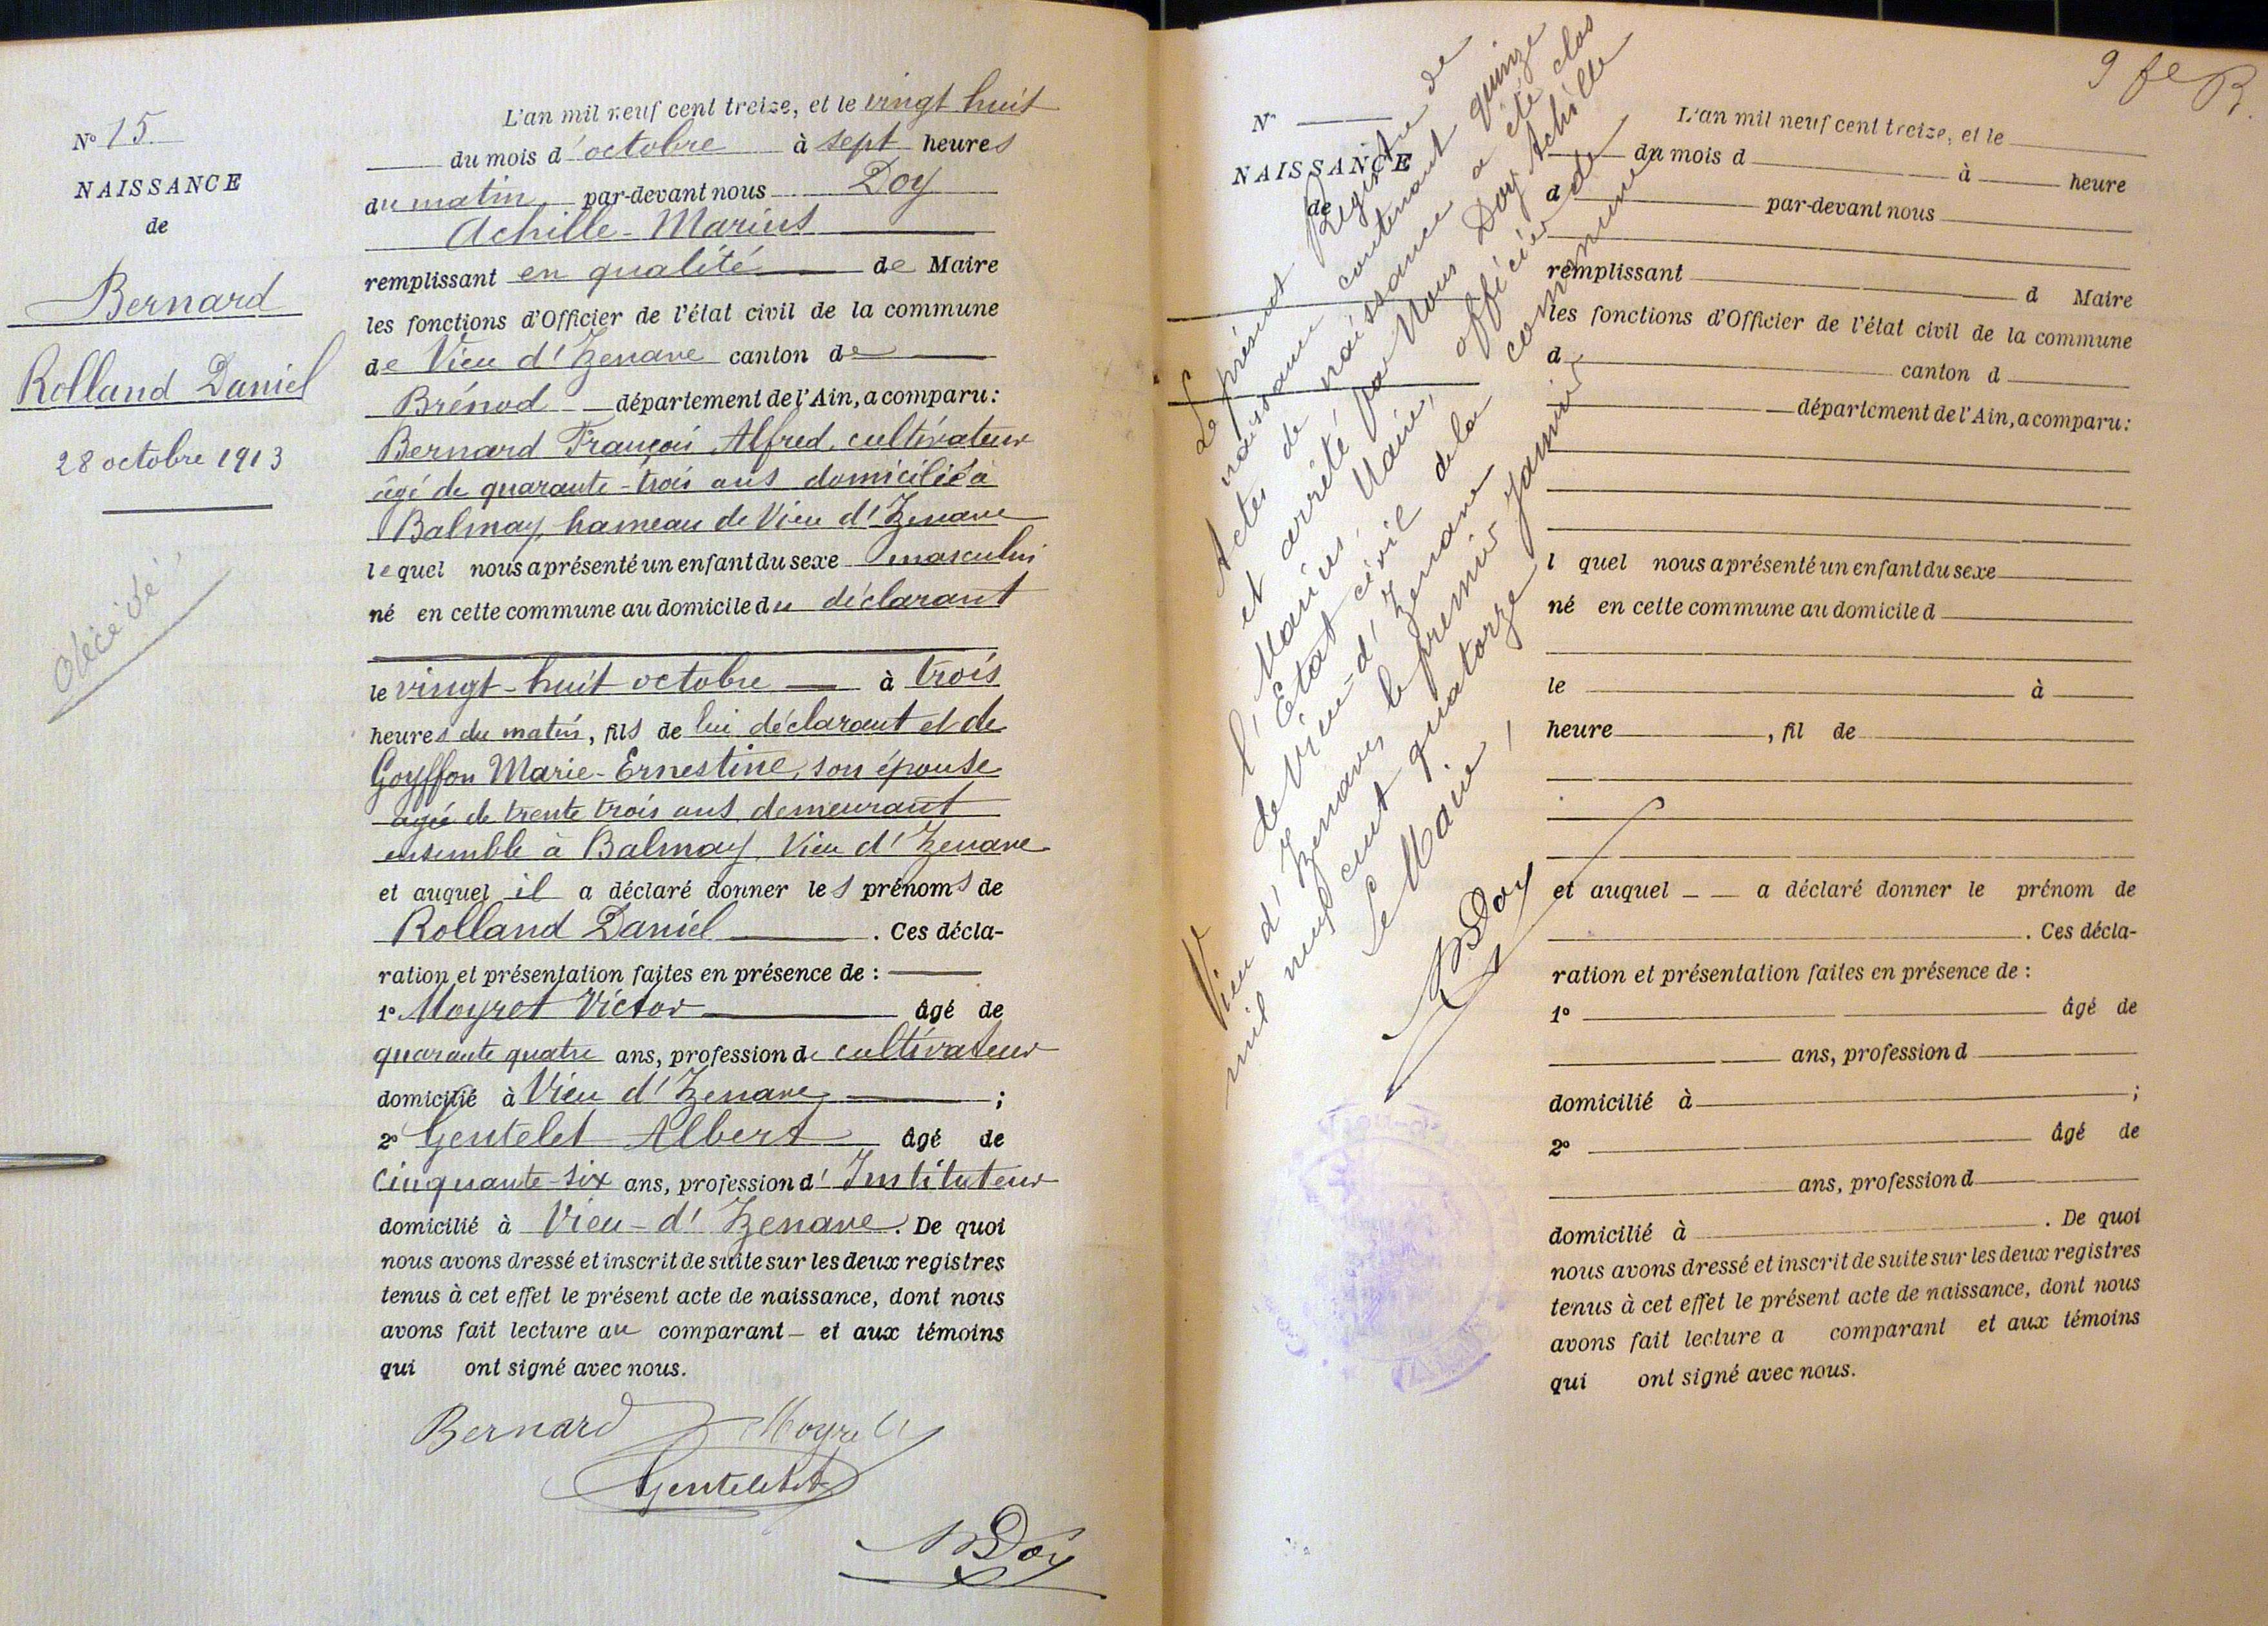 N° 15
NAISSANCE
de
Bernard
Rolland Daniel
28 octobre 1913
décédé
L'an mil neuf cent treize, et le vingt huit
du mois d'octobre à sept heures
du matin par-devant nous Doy
Achille-Marius
remplissant en qualité de Maire
les fonctions d'Officier de l'état civil de la commune
de Vieu d'Izenave canton de
Brénod département de l'Ain, a comparu :
Bernard François Alfred, cultivateur
âgé de quarante-trois ans domicilié à
Balmay, hameau de Vieu d'Izenave
lequel nous a présenté un enfant du sexe masculin
né en cette commune au domicile du déclarant
le vingt-huit octobre à trois
heures du matin, fils de lui déclarant et de
Goyffon Marie-Ernestine, son épouse
agée de trente trois ans, demeurant
ensemble à Balmay, Vieu d'Izenave
et auquel il a déclaré donner les prénoms de
Rolland Daniel. Ces décla-
ration et présentation faites en présence de :
1° Moyret Victor âgé de
quarante quatre ans, profession de cultivateur
domicilié à Vieu d'Izenave ;
2° Gentelet Albert âgé de
cinquante-six ans, profession d'Instituteur
domicilié à Vieu-d'Izenave. De quoi
nous avons dressé et inscrit de suite sur les deux registres
tenus à cet effet le présent acte de naissance, dont nous
avons fait lecture au comparant et aux témoins
qui ont signé avec nous.
Bernard Moyret
Gentelet
Doy
9 fe
N°
NAISSANCE
de
Le présent Registre de
naissance contenant quinze
Actes de naissance a été clos
et arrêté par Nous Doy Achille
Marius, Maire, officier de
l'Etat civil de la commune
de Vieu-d'Izenave
Vieu d'Izenave, le premier Janvier
mil neuf cent quatorze
Le Maire,
Doy
L'an mil neuf cent treize, et le
du mois d à heure
d par-devant nous
remplissant d Maire
les fonctions d'Officier de l'état civil de la commune
d canton d
département de l'Ain, a comparu :
l quel nous a présenté un enfant du sexe
né en cette commune au domicile d
le à
heure , fil de
et auquel a déclaré donner le prénom de
. Ces décla-
ration et présentation faites en présence de :
1° âgé de
ans, profession d
domicilié à ;
2° âgé de
ans, profession d
domicilié à . De quoi
nous avons dressé et inscrit de suite sur les deux registres
tenus à cet effet le présent acte de naissance, dont nous
avons fait lecture a comparant et aux témoins
qui ont signé avec nous.